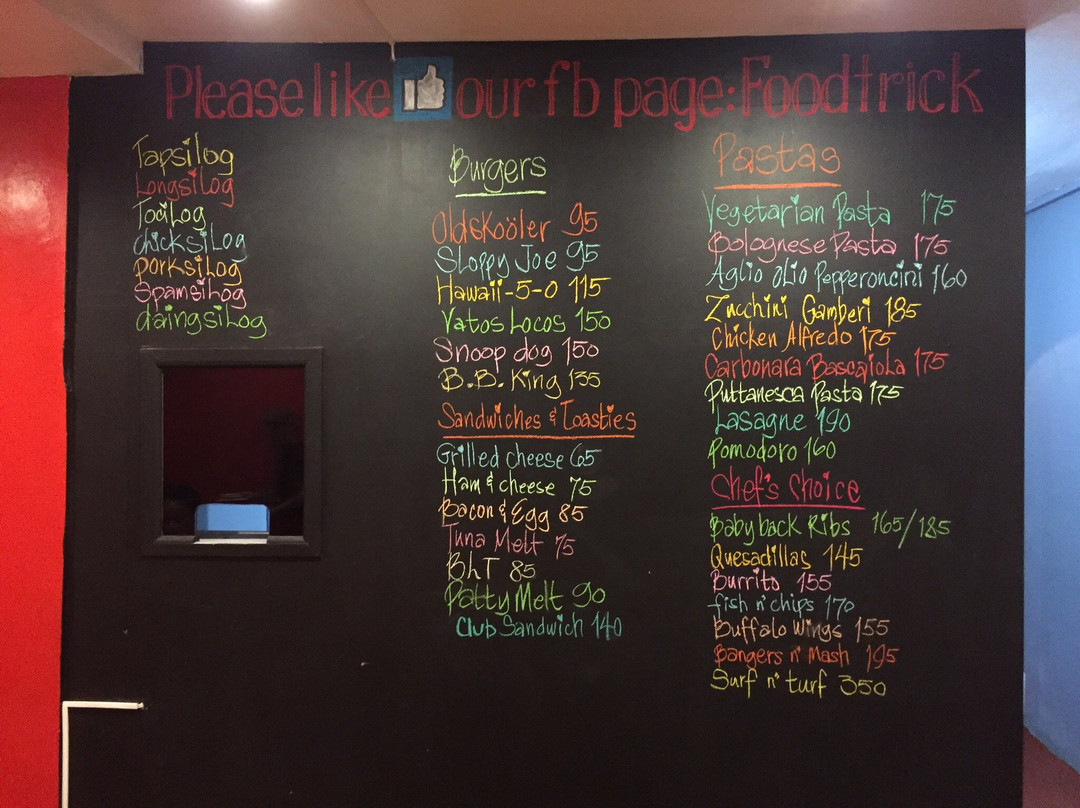 Please like our fb page: Foodtrick
Tapsilog
Longsilog
TociLog
chicksiLog
porksiLog
SpamsiLog
daingsiLog
Burgers
Oldskoöler 95
Sloppy Joe 95
Hawaii-5-0 115
Vatos Locos 150
Snoop dog 150
B.B. King 135
Sandwiches & Toasties
Grilled cheese 65
Ham & cheese 75
Bacon & Egg 85
Tuna Melt 75
BLT 85
Patty Melt 90
Club Sandwich 140
Pastas
Vegetarian Pasta 175
Bolognese Pasta 175
Aglio oLio Pepperoncini 160
Zucchini Gamberi 185
Chicken Alfredo 175
Carbonara Bascaiola 175
Puttanesca Pasta 175
Lasagne 190
Pomodoro 160
Chef's Choice
Baby back Ribs 165/185
Quesadillas 145
Burrito 155
fish n' chips 170
Buffalo Wings 155
Bangers n' Mash 195
Surf n' turf 350